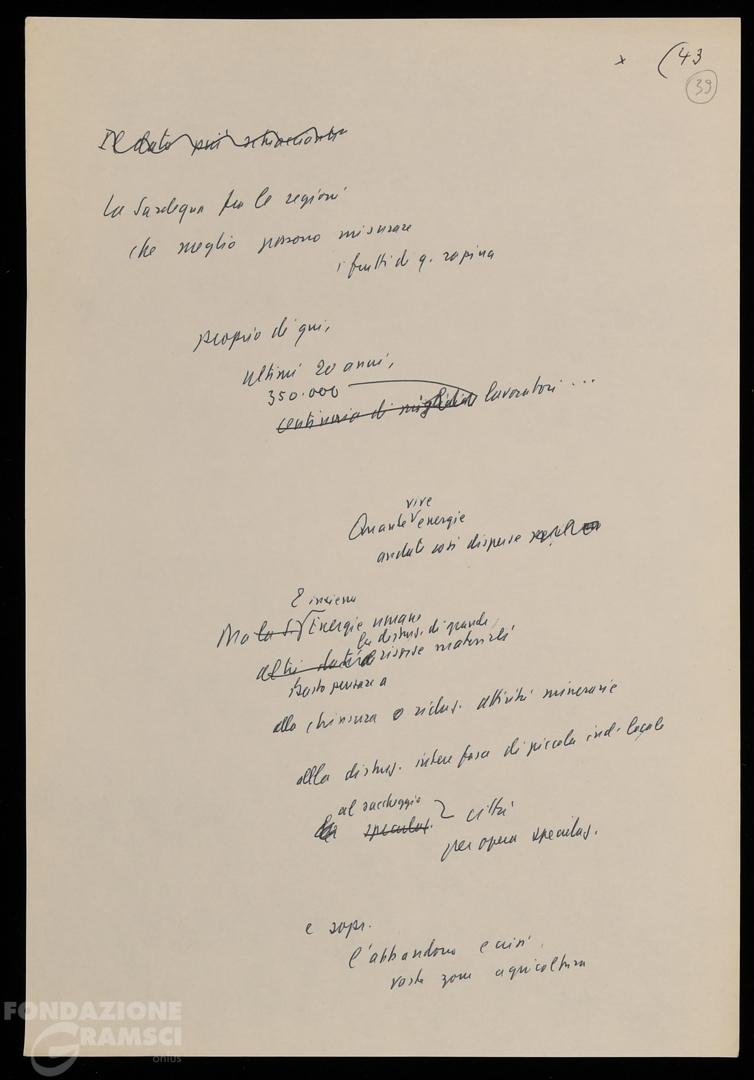 x (43
39
Il dato più
La Sardegna fra le regioni
che meglio possono misurare
i frutti di q. rapina
proprio di qui,
ultimi 20 anni,
350.000
centinaia di migliaia lavoratori ...
vive
Quante energie
andate così disperse
E insieme
Ma la s. Energie umane
la distruz. di grandi
altri dati risorse materiali
Basta pensare a
alla chiusura o riduz. attività minerarie
alla distruz. intere fasce di piccola ind. locale
al saccheggio
la speculaz. città
per opera speculaz.
e sopr.
l'abbandono e crisi
vaste zone agricoltura
FONDAZIONE
GRAMSCI
onlus